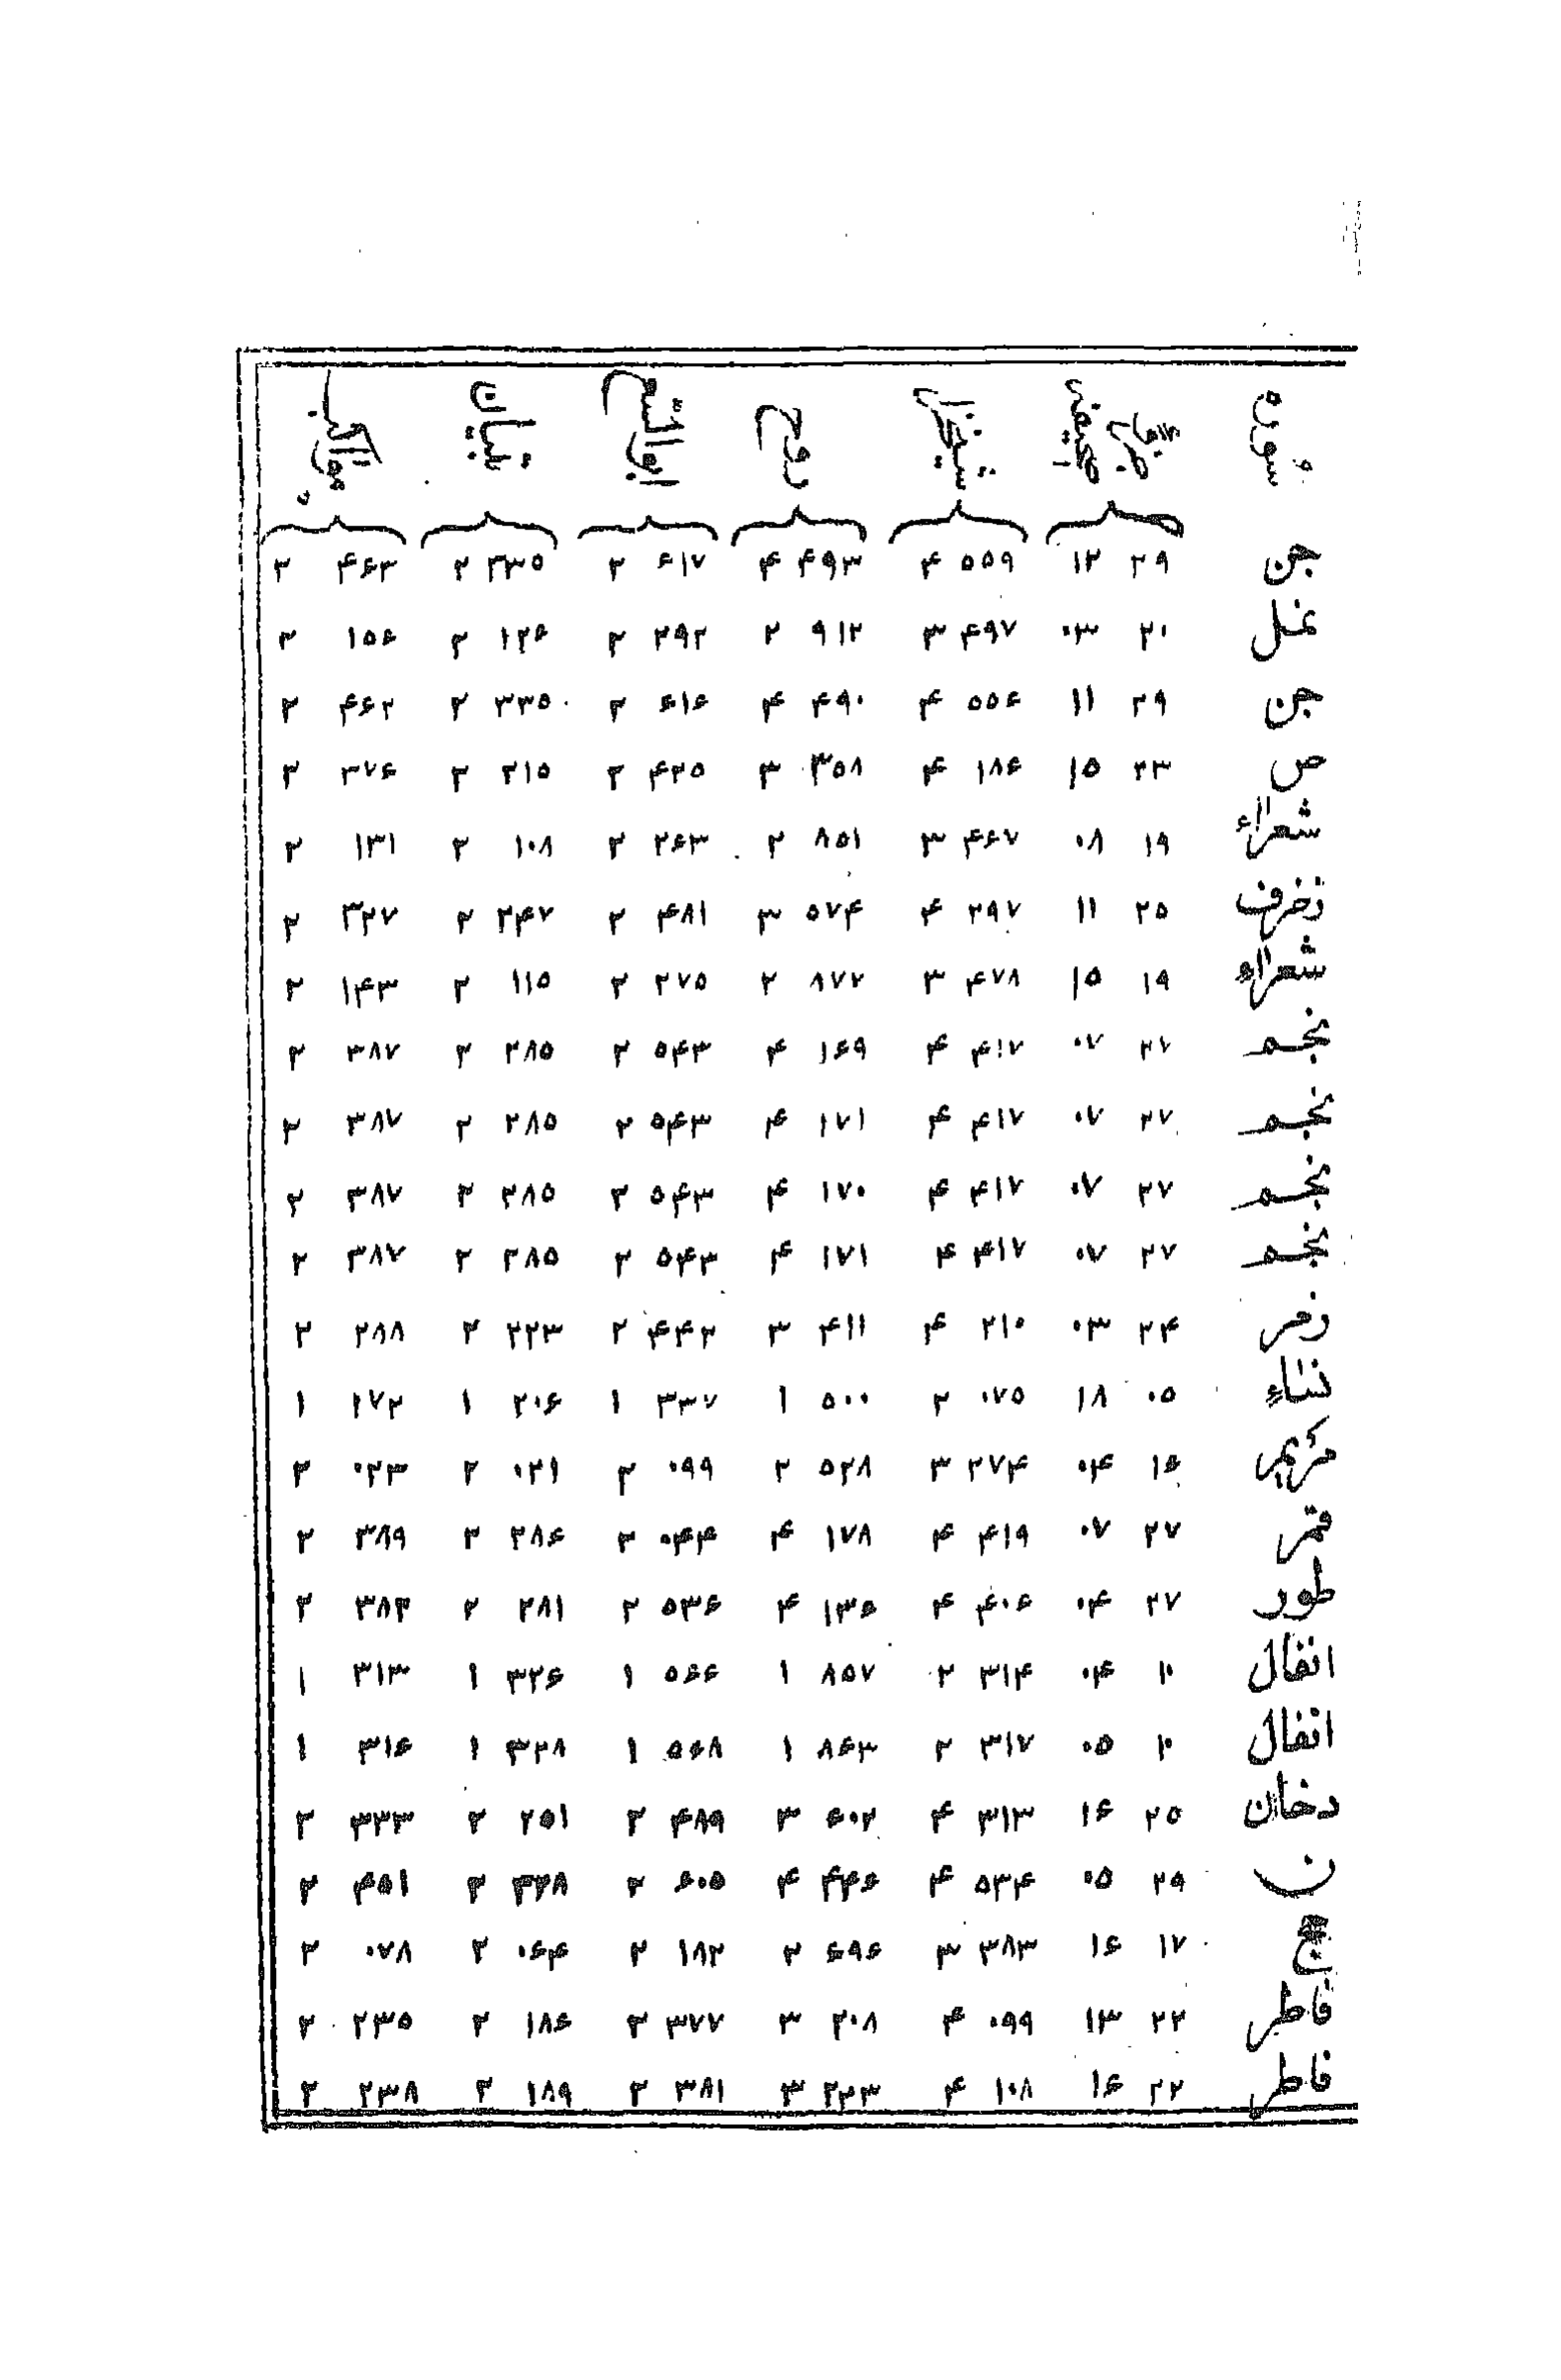 سوره تبیان
جن ۲۹ ۱۲ ۵۵۹ ۴ ۴۹۳ ۴ ۶۱۷ ۲ ۳۳۵ ۲ ۴۶۳ ۲
نمل ۲۰ ۰۳ ۴۹۷ ۳ ۹۱۲ ۲ ۲۹۲ ۲ ۱۲۶ ۲ ۱۵۶ ۲
جن ۲۹ ۱۱ ۵۵۶ ۴ ۴۹۰ ۴ ۶۱۶ ۲ ۳۳۵ ۲ ۴۶۲ ۲
ص ۲۳ ۱۵ ۱۸۶ ۴ ۳۵۸ ۳ ۴۲۵ ۲ ۲۱۵ ۲ ۲۷۶ ۲
شعراء ۱۹ ۰۸ ۴۶۷ ۳ ۸۵۱ ۲ ۲۶۳ ۲ ۱۰۸ ۲ ۱۳۱ ۲
زخرف ۲۵ ۱۱ ۲۹۷ ۴ ۵۷۴ ۳ ۴۸۱ ۲ ۲۴۷ ۲ ۳۲۷ ۲
شعراء ۱۹ ۱۵ ۴۷۸ ۳ ۸۷۲ ۲ ۲۷۵ ۲ ۱۱۵ ۲ ۱۴۳ ۲
نجم ۲۷ ۰۷ ۴۱۷ ۴ ۱۶۹ ۴ ۵۴۳ ۲ ۲۸۵ ۲ ۳۸۷ ۲
نجم ۲۷ ۰۷ ۴۱۷ ۴ ۱۷۱ ۴ ۵۴۳ ۲ ۲۸۵ ۲ ۳۸۷ ۲
نجم ۲۷ ۰۷ ۴۱۷ ۴ ۱۷۰ ۴ ۵۴۳ ۲ ۲۸۵ ۲ ۳۸۷ ۲
نجم ۲۷ ۰۷ ۴۱۷ ۴ ۱۷۱ ۴ ۵۴۳ ۲ ۲۸۵ ۲ ۳۸۷ ۲
زمر ۲۴ ۰۳ ۲۱۰ ۴ ۴۱۱ ۳ ۴۴۲ ۲ ۲۲۳ ۲ ۲۸۸ ۲
نساء ۰۵ ۱۸ ۰۷۵ ۲ ۵۰۰ ۱ ۳۳۷ ۱ ۲۰۶ ۱ ۱۷۲ ۱
مریم ۱۶ ۰۴ ۲۷۴ ۳ ۵۲۸ ۲ ۰۹۹ ۲ ۰۲۱ ۲ ۰۲۳ ۲
قمر ۲۷ ۰۷ ۴۱۹ ۴ ۱۷۸ ۴ ۰۴۴ ۲ ۲۸۶ ۲ ۳۸۹ ۲
طور ۲۷ ۰۴ ۴۰۶ ۴ ۱۳۶ ۴ ۵۳۶ ۲ ۲۸۱ ۲ ۳۸۳ ۲
انفال ۱۰ ۰۴ ۳۱۴ ۲ ۸۵۷ ۱ ۵۶۶ ۱ ۳۲۶ ۱ ۳۱۳ ۱
انفال ۱۰ ۰۵ ۳۱۷ ۲ ۸۶۳ ۱ ۵۶۸ ۱ ۳۲۸ ۱ ۳۱۶ ۱
دخان ۲۵ ۱۶ ۳۱۳ ۴ ۶۰۲ ۳ ۴۸۹ ۲ ۲۵۱ ۲ ۳۳۳ ۲
ن ۲۹ ۰۵ ۵۳۴ ۴ ۴۴۶ ۴ ۶۰۵ ۲ ۳۲۸ ۲ ۴۵۱ ۲
حج ۱۷ ۱۶ ۳۸۳ ۳ ۶۹۶ ۲ ۱۸۲ ۲ ۰۶۴ ۲ ۰۷۸ ۲
فاطر ۲۲ ۱۳ ۰۹۹ ۴ ۲۰۸ ۳ ۳۷۷ ۲ ۱۸۶ ۲ ۲۳۵ ۲
فاطر ۲۲ ۱۶ ۱۰۸ ۴ ۲۲۳ ۳ ۳۸۱ ۲ ۱۸۹ ۲ ۲۳۸ ۲